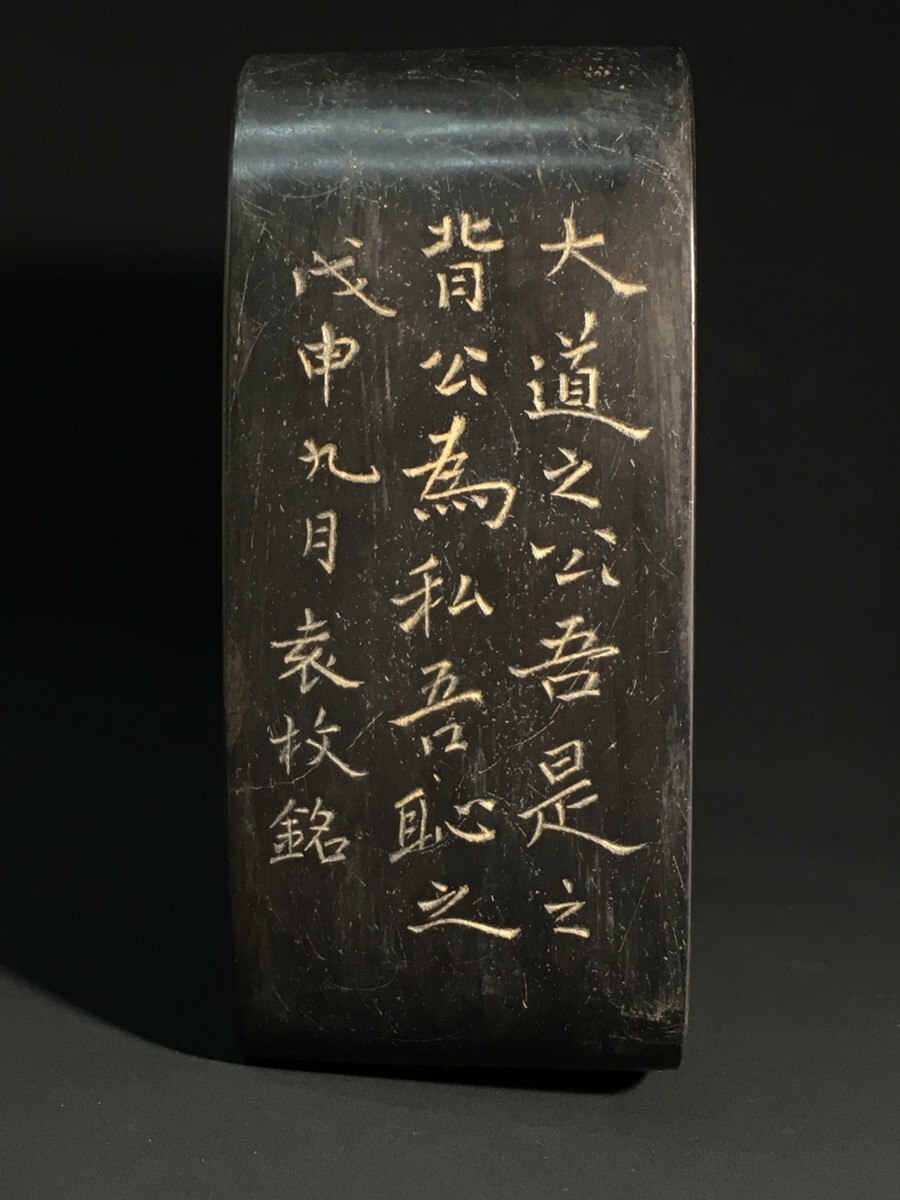 大道之公吾是之
背公為私吾恥之
戊申九月袁枚銘